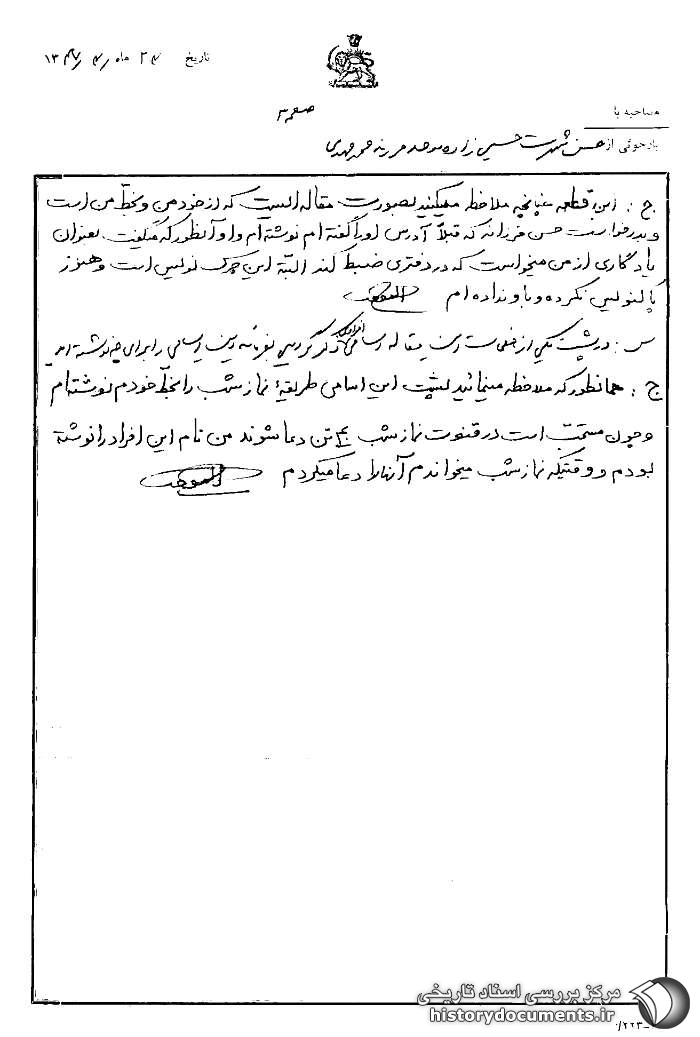 تاریخ ۲۴ ماه ۴ ۱۳۴۷
صفحه ۳
مصاحبه با
بازجوئی از حسن شهرت حسین زاده موحد فرزند محمد مهدی
ج : این قطعه چنانچه ملاحظه میکنید بصورت مقاله ایست که از خود من و بخط من است
و بدرخواست حسن فرزانه که قبلاً آدرس او را گفته ام نوشته ام و او آنطور که میگفت بعنوان
یادگاری از من میخواست که در دفتری ضبط کند البته این چرک نویس است و هنوز
پاکنویس نکرده و باو نداده ام
س : در پشت یکی از این مقاله اسامی افرادی ذکر گردیده بفرمائید این اسامی را برای چه نوشته اید
ج : همانطور که ملاحظه مینمائید پشت این اسامی طریقهٔ نماز شب را بخط خودم نوشته ام
و چون مستحب است در قنوت نماز شب ۴۰ تن دعا شوند من نام این افراد را نوشته
بودم و وقتیکه نماز شب میخواندم آنها را دعا میکردم
مرکز بررسی اسناد تاریخی
historydocuments.ir